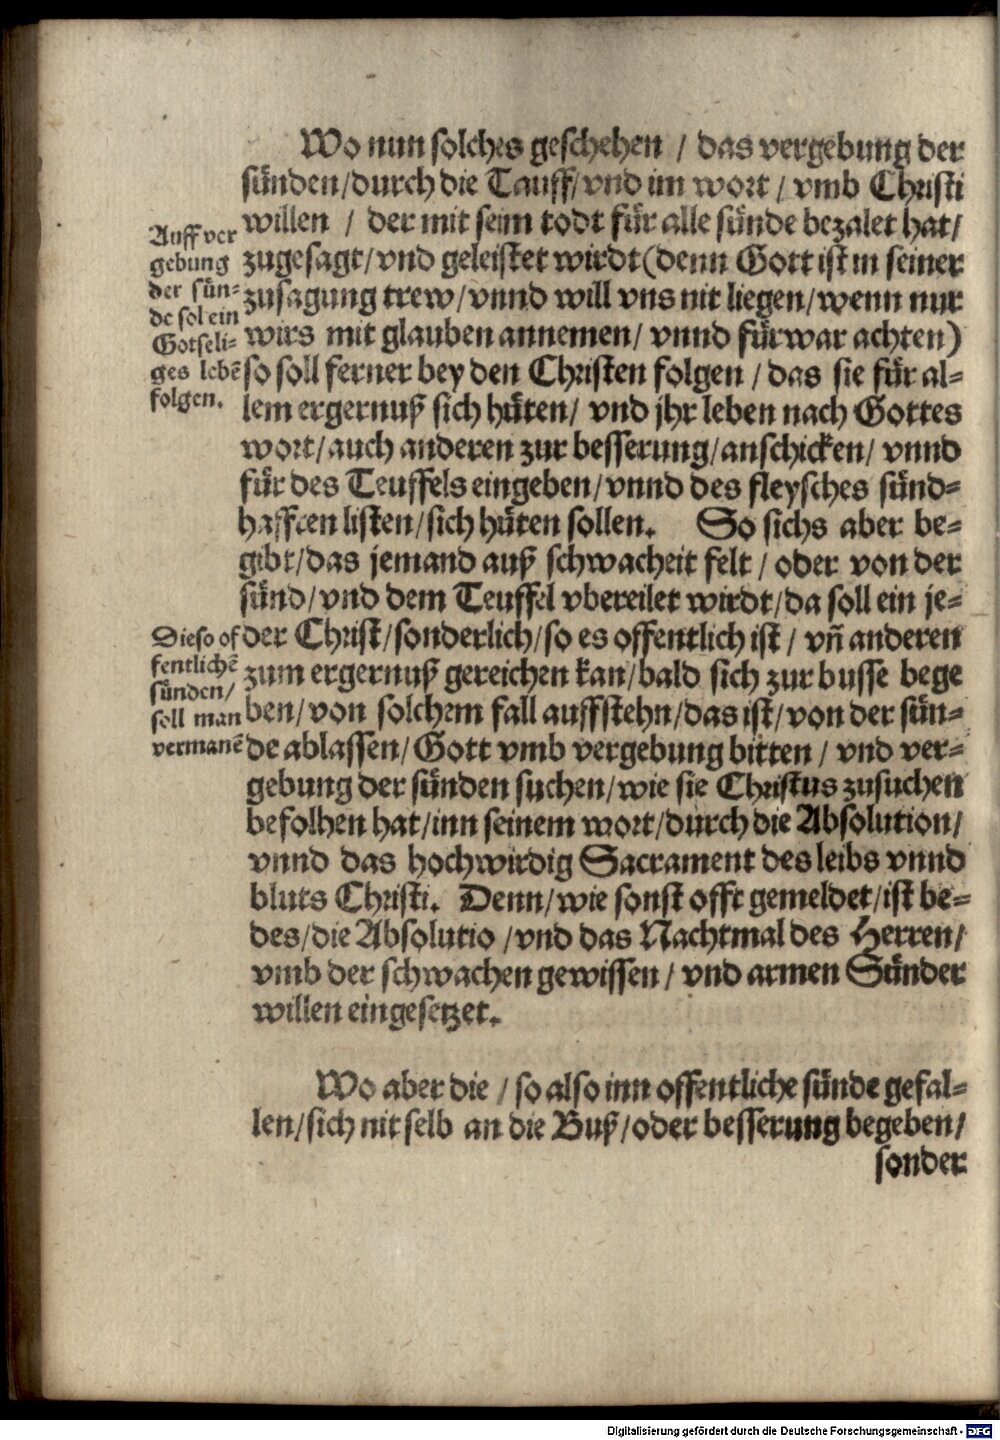 Wo nun solches geschehen / das vergebung der
sünden/durch die Tauff/vnd im wort / vmb Christi
willen / der mit seim todt für alle sünde bezalet hat/
zugesagt/vnd geleistet wirdt (denn Gott ist in seiner
zusagung trew/vnnd will vns nit liegen/wenn nur
wirs mit glauben annemen/ vnnd fürwar achten)
so soll ferner bey den Christen folgen / das sie für al=
lem ergernuß sich hüten/ vnd jhr leben nach Gottes
wort/auch anderen zur besserung/anschicken/ vnnd
für des Teuffels eingeben/vnnd des fleysches sünd=
hafften listen/sich hüten sollen. So sichs aber be=
gibt/das jemand auß schwacheit felt / oder von der
sünd/vnd dem Teuffel vbereilet wirdt/da soll ein je=
der Christ/sonderlich/so es offentlich ist / vñ anderen
zum ergernuß gereichen kan/bald sich zur busse bege
ben/von solchem fall auffstehn/das ist/von der sün=
de ablassen/Gott vmb vergebung bitten / vnd ver=
gebung der sünden suchen/wie sie Christus zusuchen
befolhen hat/inn seinem wort/durch die Absolution/
vnnd das hochwirdig Sacrament des leibs vnnd
bluts Christi. Denn/wie sonst offt gemeldet/ist be=
des/die Absolutio /vnd das Nachtmal des Herren/
vmb der schwachen gewissen / vnd armen Sünder
willen eingesetzet.
Auff ver
gebung
der sün=
de sol ein
Gotseli=
ges lebē
folgen.
Die so of
fentlichē
sünden/
soll man
vermanē
Wo aber die / so also inn offentliche sünde gefal=
len/sich nit selb an die Buß/oder besserung begeben/
sonder
Digitalisierung gefördert durch die Deutsche Forschungsgemeinschaft - DFG